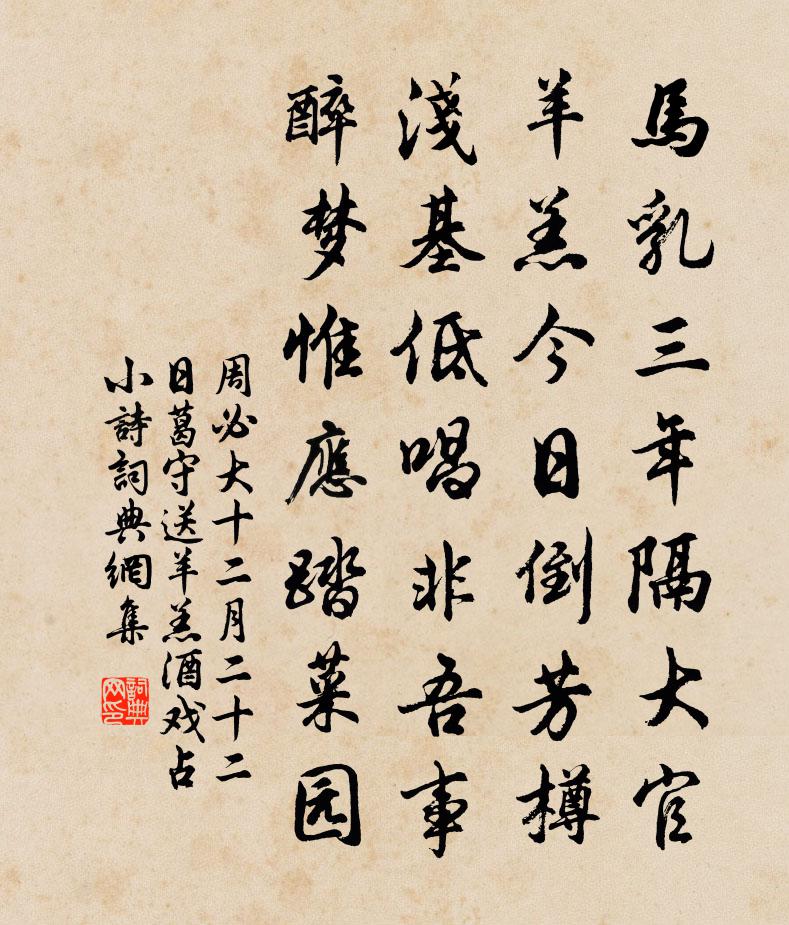 馬乳三年隔大官
羊羔今日倒芳樽
淺基低唱非吾事
醉梦惟應踏菜园
周必大十二月二十二
日葛守送羊羔酒戏占
小詩詞典網集
詞典网印